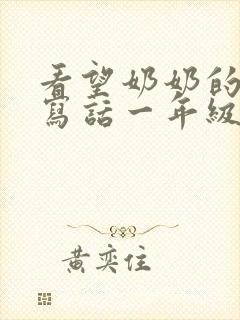 看望奶奶的
寫話一年級
黃奕住